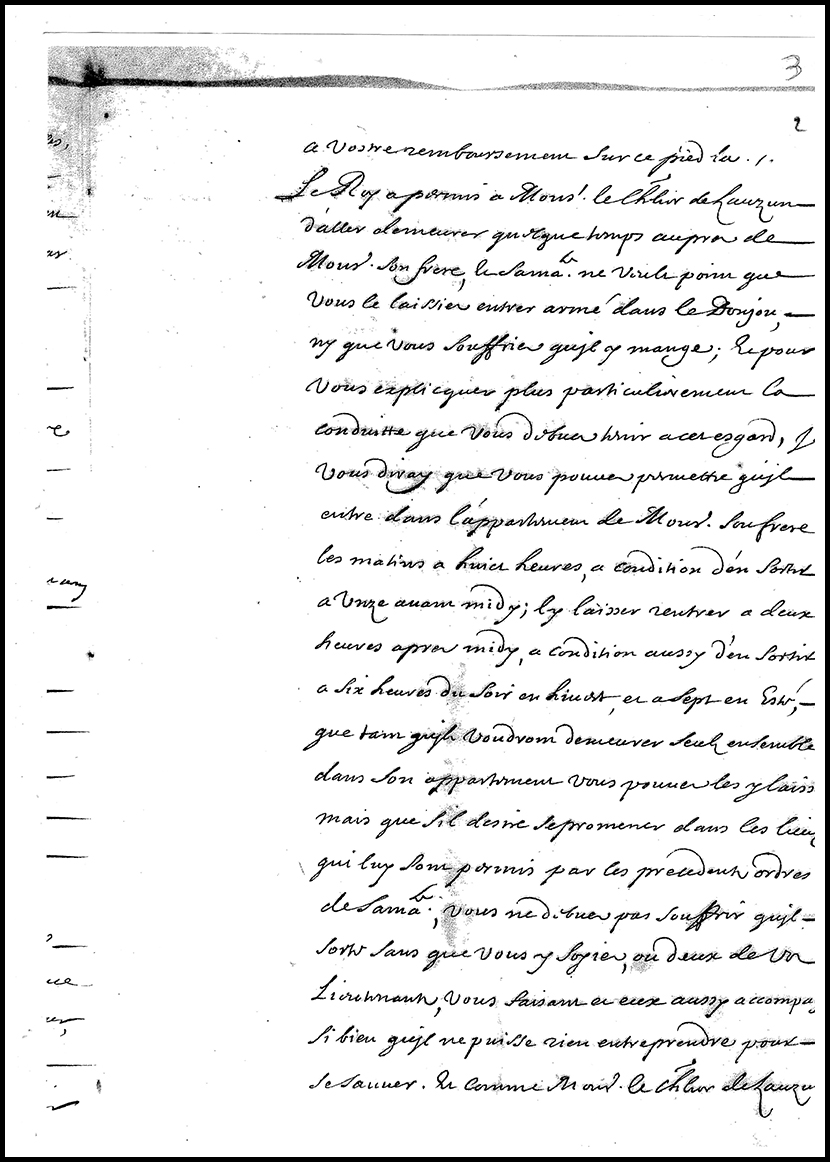 3
2
a vostre remboursement sur ce pied la ./.
Le Roy a permis a Monsr. le Chlier de Lauzun
d'aller demeurer quelque temps aupres de
Monsr. son frere, Et sa Maté. ne veult point que
vous le laissiez entrer armé dans le Donjon,
ny que vous souffriez qu'il y mange; Et pour
vous explicquer plus particulierement la
conduitte que vous debuez tenir a cet esgard, J
vous diray que vous pouvez permettre qu'il
entre dans l'appartement de Monsr. son frere
les matins a huict heures, a condition d'en sortir
a unze avant midy; l'y laisser rentrer a deux
heures apres midy, a condition aussy d'en sortir
a six heures du soir en hiver, et a sept en Esté,
que tant qu'ilz voudront demeurer seulz ensemble
dans son appartement vous pouvez les y laiss
mais que s'il desire se promener dans les lieux
qui luy sont permis par les precedents ordres
de sa Maté.; vous ne debuez pas souffrir qu'il
sorte sans que vous y soyiez, ou deux de vos
Lieutenants, vous faisant et eux aussy accompag
si bien qu'il ne puisse rien entreprendre pour
se sauver. Et comme Monsr. le Chlier de Lauzu